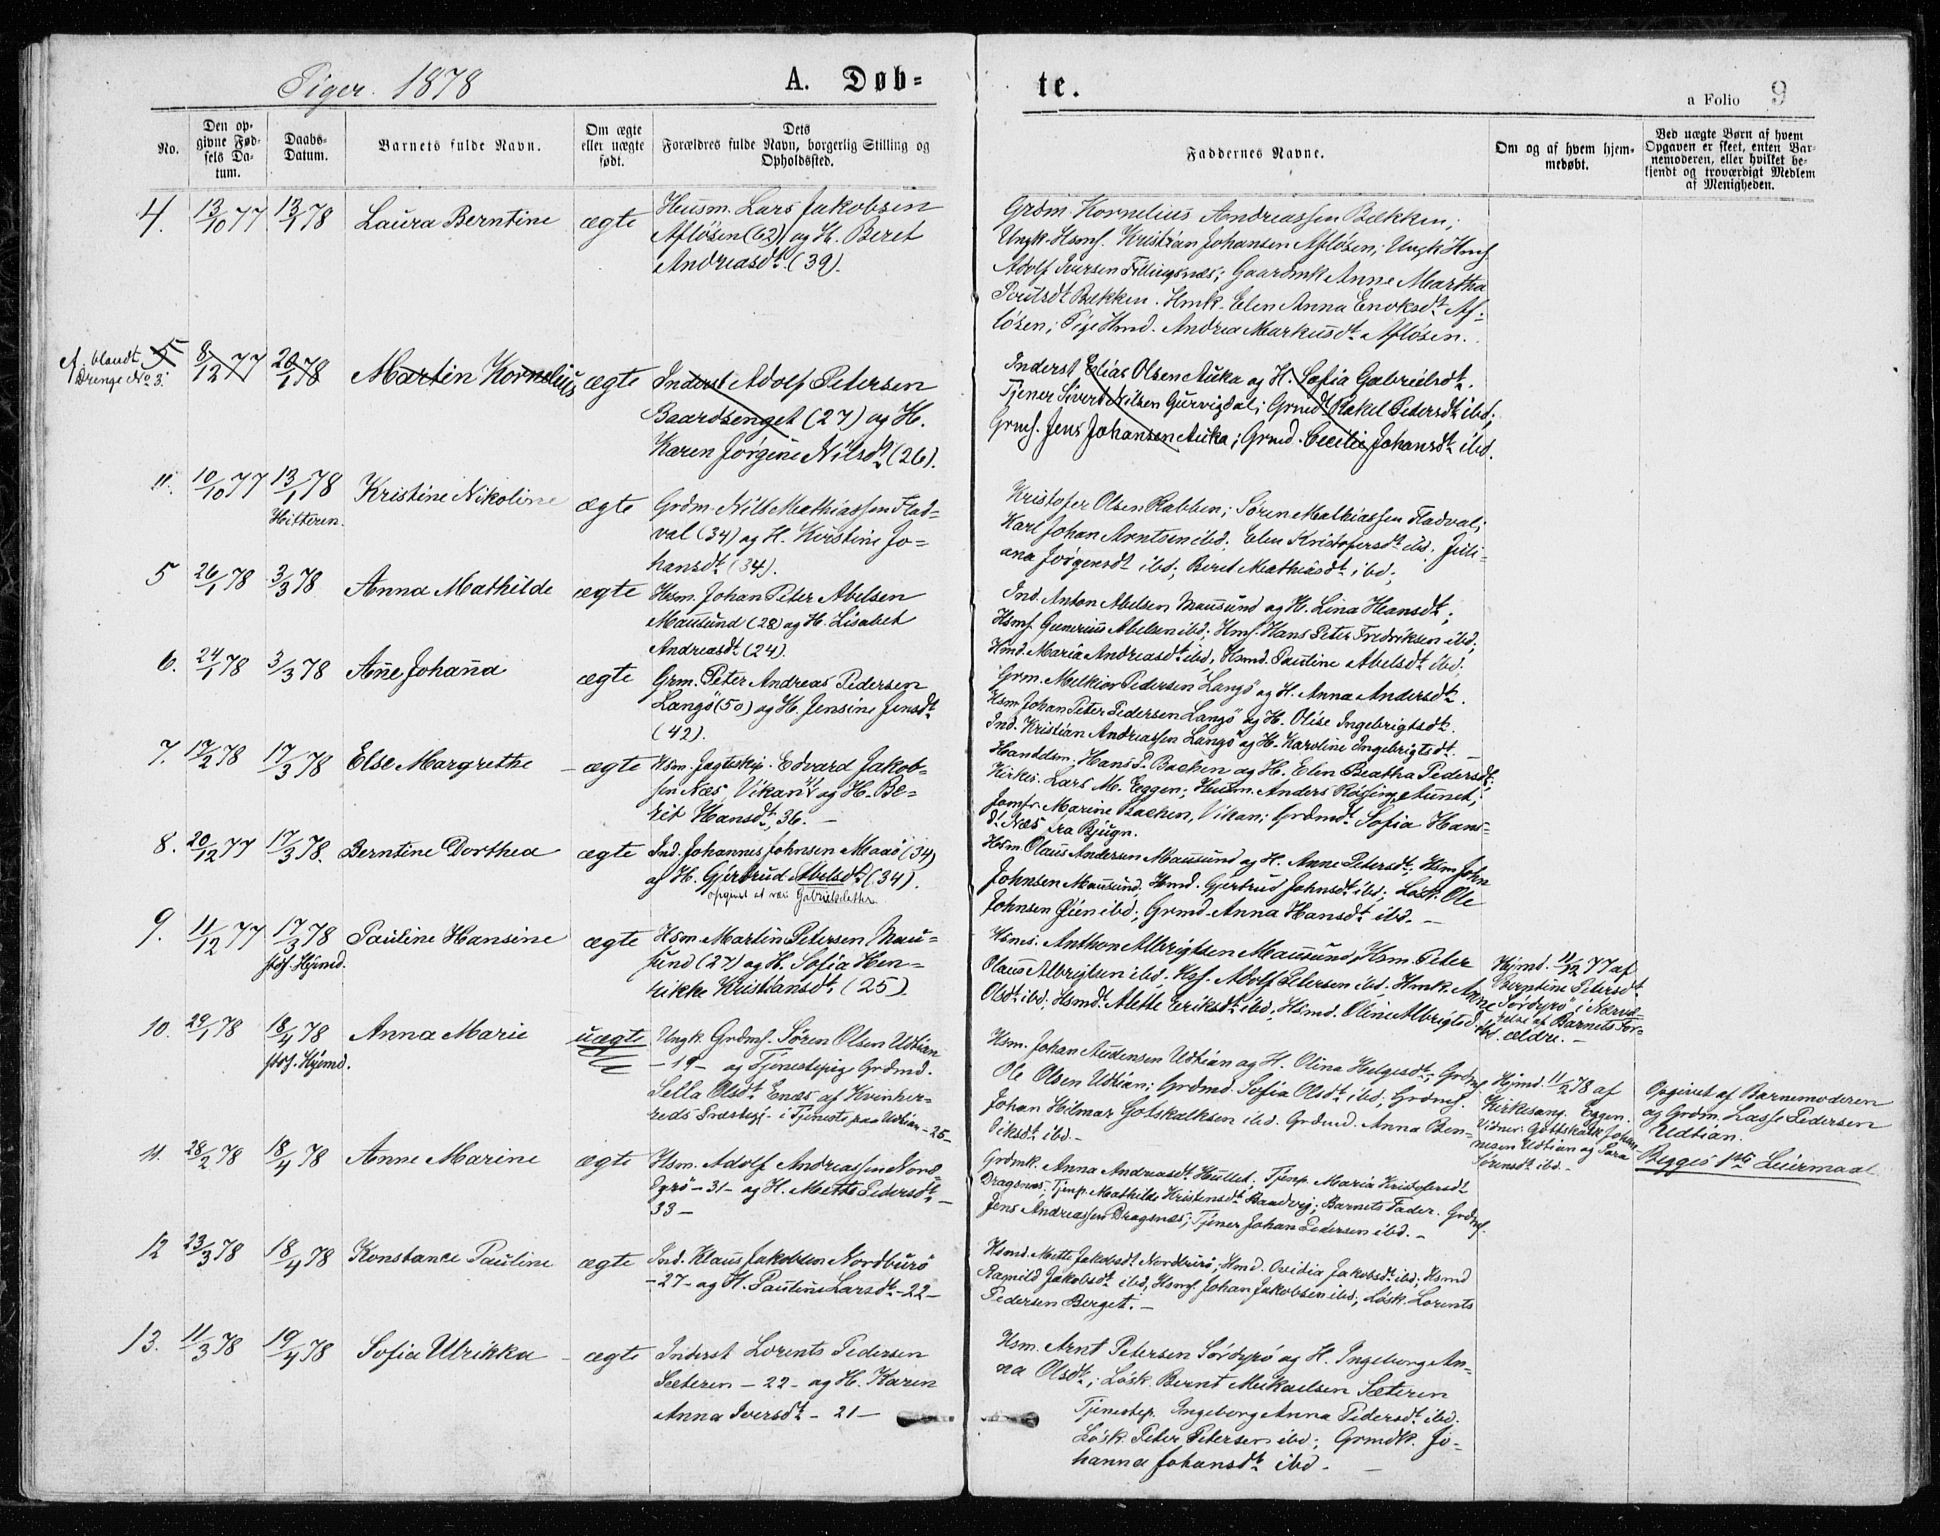 Piger. 1878
A. Døb-
te.
a Folio 9
No.
Den op-
givne Fød-
sels Da-
tum.
Daabs-
Datum.
Barnets fulde Navn.
Om ægte
eller uægte
født.
Dets
Forældres fulde Navn, borgerlig Stilling og
Opholdssted.
Faddernes Navne.
Om og af hvem hjem-
medøbt.
Ved uægte Børn af hvem
Opgaven er skeet, enten Bar-
nemoderen, eller hvilket be-
kjendt og troværdigt Medlem
af Menigheden.
4. 13/10 77 13/1 78 Laura Berntine ægte
Husm. Lars Jakobsen
Afløsen (62) og H. Beret
Andreasdt. (39).
Grdm. Kornelius Andreassen Bekken;
Ungk. Hsmf. Kristian Johansen Afløsen; Ungk. Hmf
Adolf Iversen Fillingsnæs; Gaardmk Anne Martha
Poulsdt Bekken. Hmk. Elen Anna Enoksdt. Af-
løsen; Pige Hmd. Andrea Markusdt. Afløsen.
blandt
Drenge No 3.
5 8/12 77 20/1 78 Martin Kornelius ægte
Inderst Adolf Petersen
Baardsenget (27) og H.
Karen Jørgine Nilsdt. (26).
Inderst Elias Olsen Auka og H. Sofia Gabrielsdt.
Tjener Sivert Nilsen Gurvigdal; Grmd. Rakel Petersdt ibd;
Grmf. Jens Johansen Auka; Grmd. Cecilie Johansdt ibd.
4. 10/10 77 13/1 78 Kristine Nikoline ægte
Hitteren.
Grdm. Nils Mathiassen Flad-
val (34) og H. Kirstine Jo-
hansdt. (34).
Kristofer Olsen Rabben; Søren Mathiassen Fladval;
Karl Johan Arntsen ibd; Elen Kristofersdt ibd. Juli-
ana Jørgensdt ibd; Beret Mathiasdt ibd.
5 26/1 78 3/3 78 Anna Mathilde ægte
Hsm. Johan Peter Abelsen
Mausund (28) og H. Lisabet
Andreasdt. (24).
Ind. Anton Abelsen Mausund og H. Lina Hansdt;
Hsmf. Gunerius Abelsen ibd; Hmf. Hans Peter Fredriksen ibd;
Hmd. Maria Andreasdt ibd, Hsmd. Pauline Abelsdt ibd;
6. 24/1 78 3/3 78 Anne Johanna ægte
Grm. Peter Andreas Pedersen
Langö (50) og H. Jensine Jensdt.
(42).
Grm. Melkior Pedersen Langö og H. Anna Andersdt.
Hsm Johan Peter Pedersen Langö og H. Olise Ingebrigtsdt.
Ind. Kristian Andreassen Langö og H. Karoline Ingebrigtsdt. -
7. 17/2 78 17/3 78 Else Margrethe - ægte
Hsm. Jagteskip. Edvard Jakob-
sen Næs Vikan og H. Be-
rit Hansdt, 36. -
Handelsm. Hans P. Backen og H. Elen Beatha Pedersdt;
Kirkes. Lars M. Eggen; Husm. Anders Røssing Aunet;
Jomfr. Marine Backen, Vikan; Grdmdt. Sofia Hans-
dt. Næs fra Bjugn.
8. 20/12 77 17/3 78. Berntine Dorthea ægte
Ind. Johannes Johnsen Maaö (34)
og H. Gjertrud Abelsdt. (34).
opgivet at være Gabrielsdatter
Hsm Olaus Andersen Mausund og H. Anne Petersdt; Hsm John
Johnsen Mausund. Hmd. Gjertrud Johnsdt ibd; Løsk. Ole
Johnsen Øien ibd; Grmd. Anna Hansdt ibd. -
9. 11/12 77 17/3 78 Pauline Hansine ægte
stdf. Hjmd.
Hsm Martin Petersen Mau-
sund (27) og H. Sofia Hen-
rikke Kristiansdt. (25).
Anthon Albrigtsen Mausund, Hsm. Peter
Olaus Albrigtsen ibd. Hsf. Adolf Petersen ibd; Hmk. Anne
Olsdt ibd. Hsmdt. Alette Eriksdt ibd, Hsmd. Oline Albrigtsd. ibd.
Hjmd. 11/12 77 af
Berntine Petersdt.
Sørdyrö i Nærvæ-
relse af Barnets For-
ældre. -
10. 29/1 78 18/4 78 Anna Marie uægte
stdf. Hjemd.
Ungk. Grdmf. Søren Olsen Udtian
- 19 - og Tjenestepige Grdmd.
Sella Olsdt. Enæs af Kvinher-
reds Præstegj. i Tjeneste paa Udtian - 25 -
Hsm. Johan Audensen Udtian og H. Olina Helgesdt.; Grdmf
Ole Olsen Udtian; Grdmd. Sofia Olsdt ibd; Grdmf.
Johan Hilmar Gotskalksen ibd. Grdmd. Anna Ben-
diksdt ibd. -
Hjmd. 11/2 78 af
Kirkesang. Eggen.
Vidner: Gottskalk Johan-
nesen Udtian og Sara
Sørensdt ibd. -
Opgivet af Barnemoderen
og Grdm. Lasse Pedersen
Udtian.
Begges 1ste Leiermaal
11. 28/2 78 18/4 78 Anne Marine ægte
Hsm. Adolf Andreassen Nord
Dyrö - 31 - og H. Mette Pedersdt. -
33 -
Grdmk. Anna Andreasdt. Hullet; Tjenp. Maria Kristofersdt
Dragsnæs; Tjenp. Mathilde Kristensdt. Baadvig; Barnets Fader. Grdmf.
Jens Andreassen Dragsnæs; Tjener Johan Pedersen ibd. -
12 23/3 78 18/4 78 Konstance Pauline ægte
Ind. Klaus Jakobsen Nordburö
- 27 - og H. Pauline Larsdt. - 22 -
Hsmd. Mette Jakobsdt. Nordburö; Hmd. Ovidia Jakobsdt. ibd; Hsmd
Ragnild Jakobsdt ibd; Hsmf. Johan Jakobsen ibd; Løsk. Lorents
Pedersen Berget. -
13. 11/3 78 19/4 78 Sofia Ulrikka - ægte
Inderst Lorents Pedersen
Sæteren - 22 - og H. Karen
Anna Iversdt. - 21 -
Hsm. Arnt Petersen Sørdyrö og H. Ingeborg An-
na Olsdt.; Løsk. Bernt Mikaelsen Sæteren
Tjenestep. Ingeborg Anna Pedersdt. ibd.
Løsk. Peter Petersen ibd; Grmdk. Jo-
hanna Johansdt. ibd. -